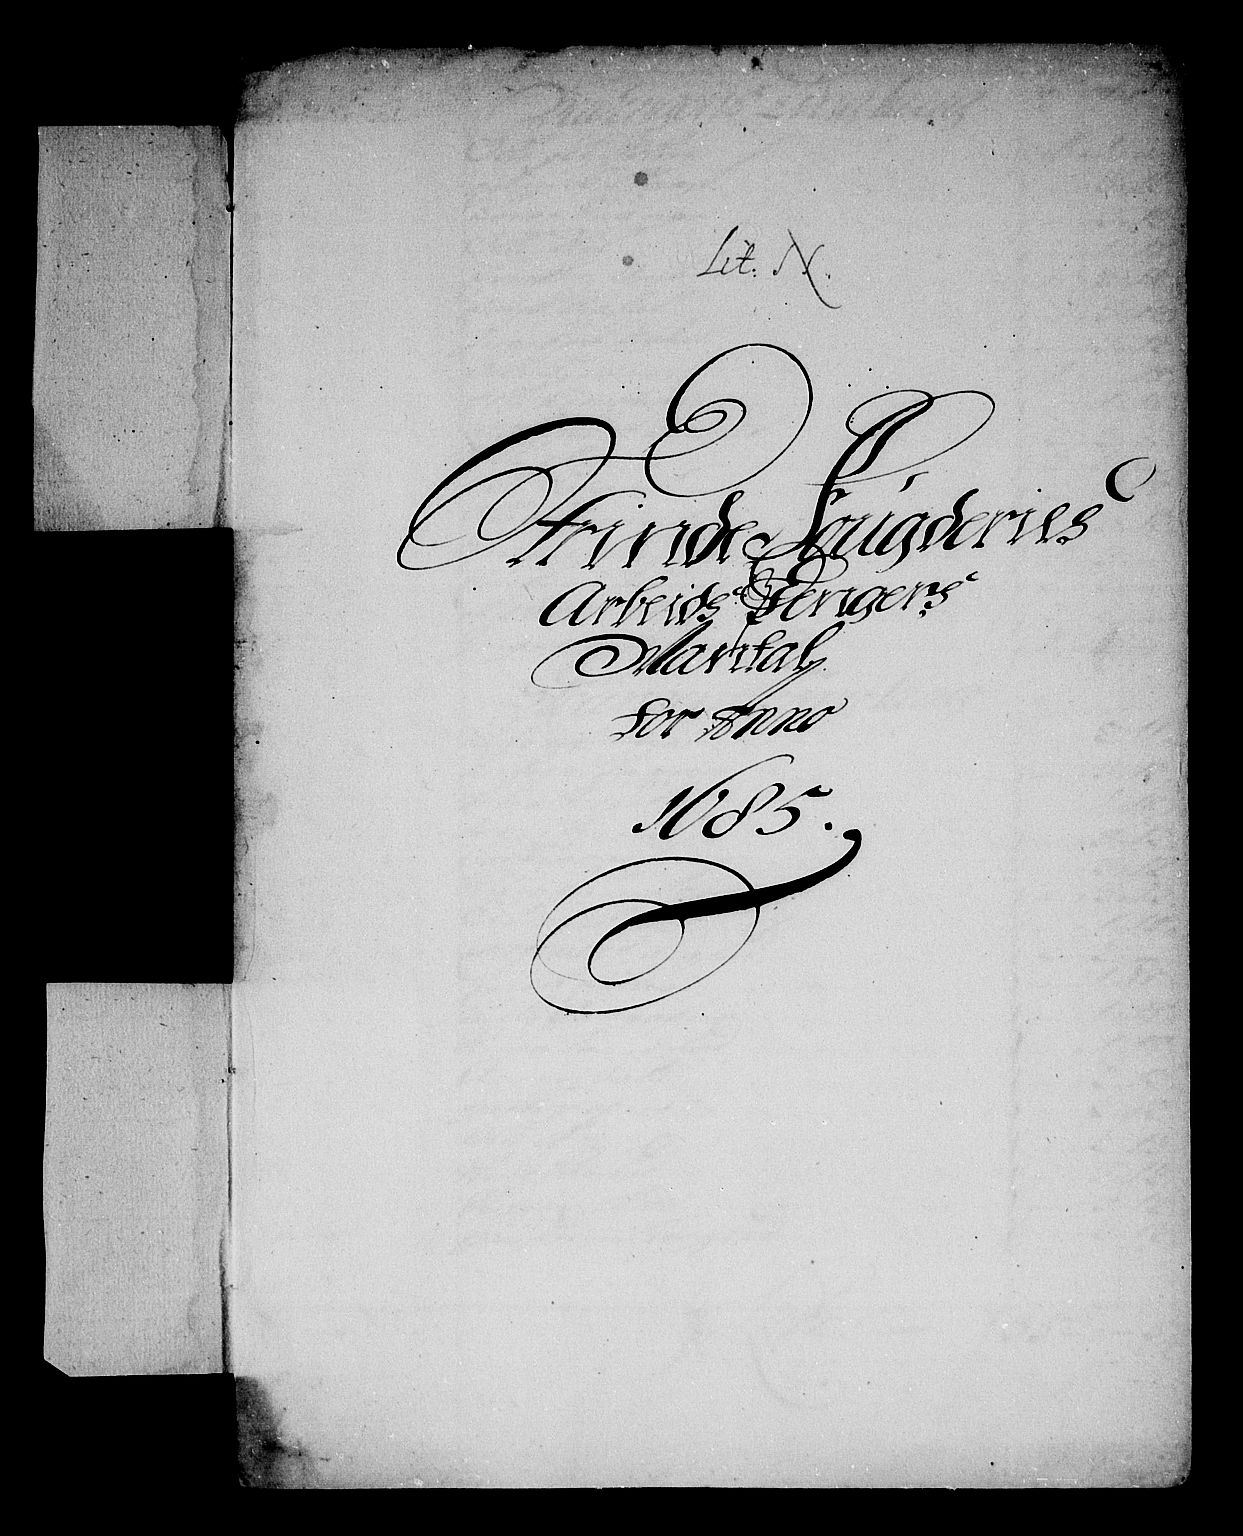 Lit: N.
Strinde Fougderies
Arbeids Pengers
Mantal
for Anno
1685.